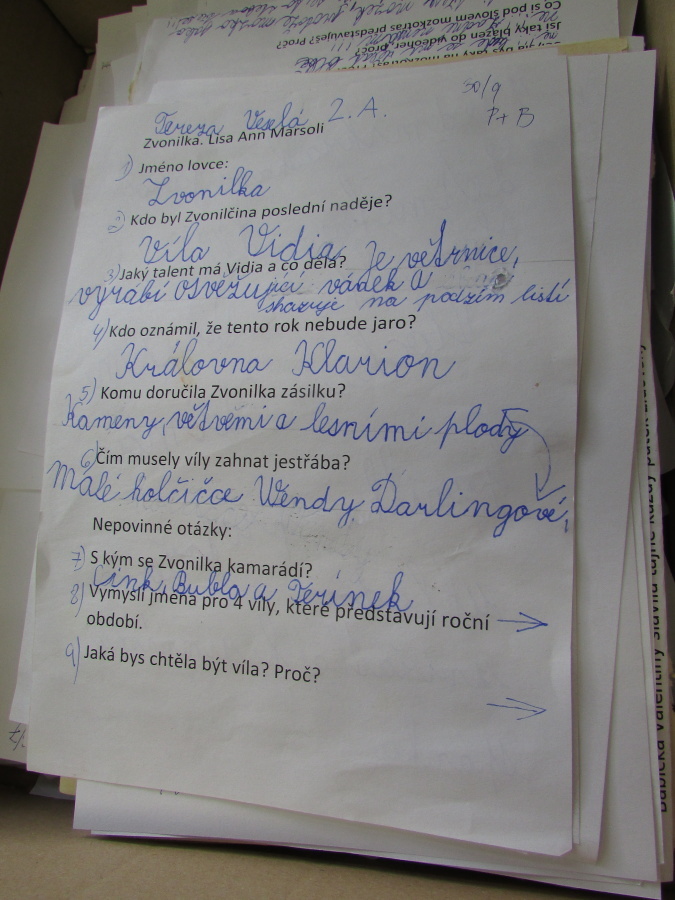 Co si pod slovem mozkoras představuješ?
Jsi taky blázen do videoher, proč?
Tereza Veselá 2.A.
30/9
P+B
Zvonilka. Lisa Ann Marsoli
1) Jméno lovce:
Zvonilka
2) Kdo byl Zvonilčina poslední naděje?
Víla Vidia
3) Jaký talent má Vidia a co dělá? Je větrnice,
vyrábí osvěžující vánek a
shazuje na podzim listí
4) Kdo oznámil, že tento rok nebude jaro?
Královna Klarion
5) Komu doručila Zvonilka zásilku?
Kameny, větvemi a lesními plody
6) Čím musely víly zahnat jestřába?
Malé holčičce Wendy Darlingové,
Nepovinné otázky:
7) S kým se Zvonilka kamarádí?
Cink, Bubla a Ferínek
8) Vymysli jména pro 4 víly, které představují roční
období.
9) Jaká bys chtěla být víla? Proč?